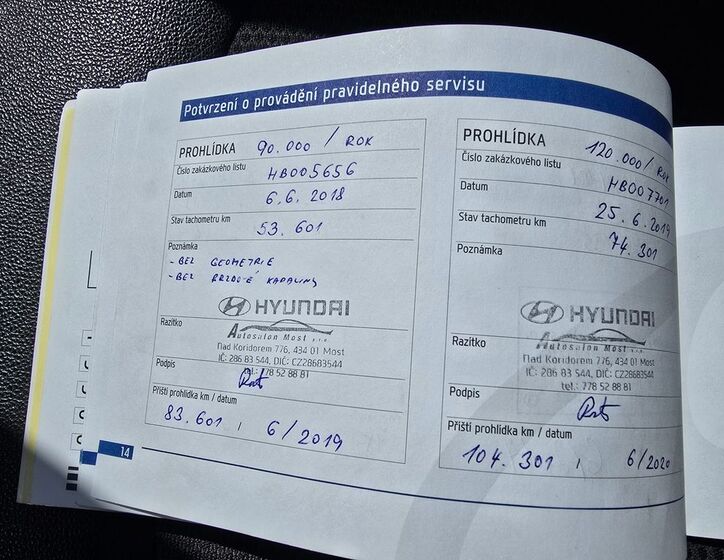 Potvrzení o provádění pravidelného servisu
PROHLÍDKA 90.000 / ROK
Číslo zakázkového listu HB005656
Datum 6.6.2018
Stav tachometru km 53.601
Poznámka
- BEZ GEOMETRIE
- BEZ BRZDOVÉ KAPALINY
HYUNDAI
Autosalon Most s.r.o.
Razítko
Nad Koridorem 776, 434 01 Most
IČ: 286 83 544, DIČ: CZ28683544
tel.: 778 52 88 81
Podpis
Příští prohlídka km / datum
83.601 / 6/2019
14
PROHLÍDKA 120.000 / ROK
Číslo zakázkového listu HB007701
Datum 25.6.2019
Stav tachometru km 74.301
Poznámka
HYUNDAI
Autosalon Most s.r.o.
Razítko
Nad Koridorem 776, 434 01 Most
IČ: 286 83 544, DIČ: CZ28683544
tel.: 778 52 88 81
Podpis
Příští prohlídka km / datum
104.301 / 6/2020